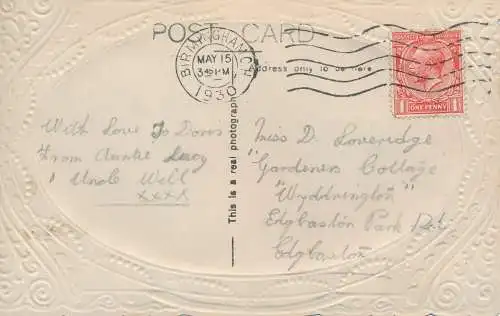 POST CARD
BIRMINGHAM
MAY 15
1930
Address only to be here
ONE PENNY
This is a real photograph
With Love To Doris
From Auntie Lucy
& Uncle Will
xxxx
Miss D. Loveridge
"Gardeners Cottage
"Wyddrington"
Edgbaston Park Rd.
Edgbaston